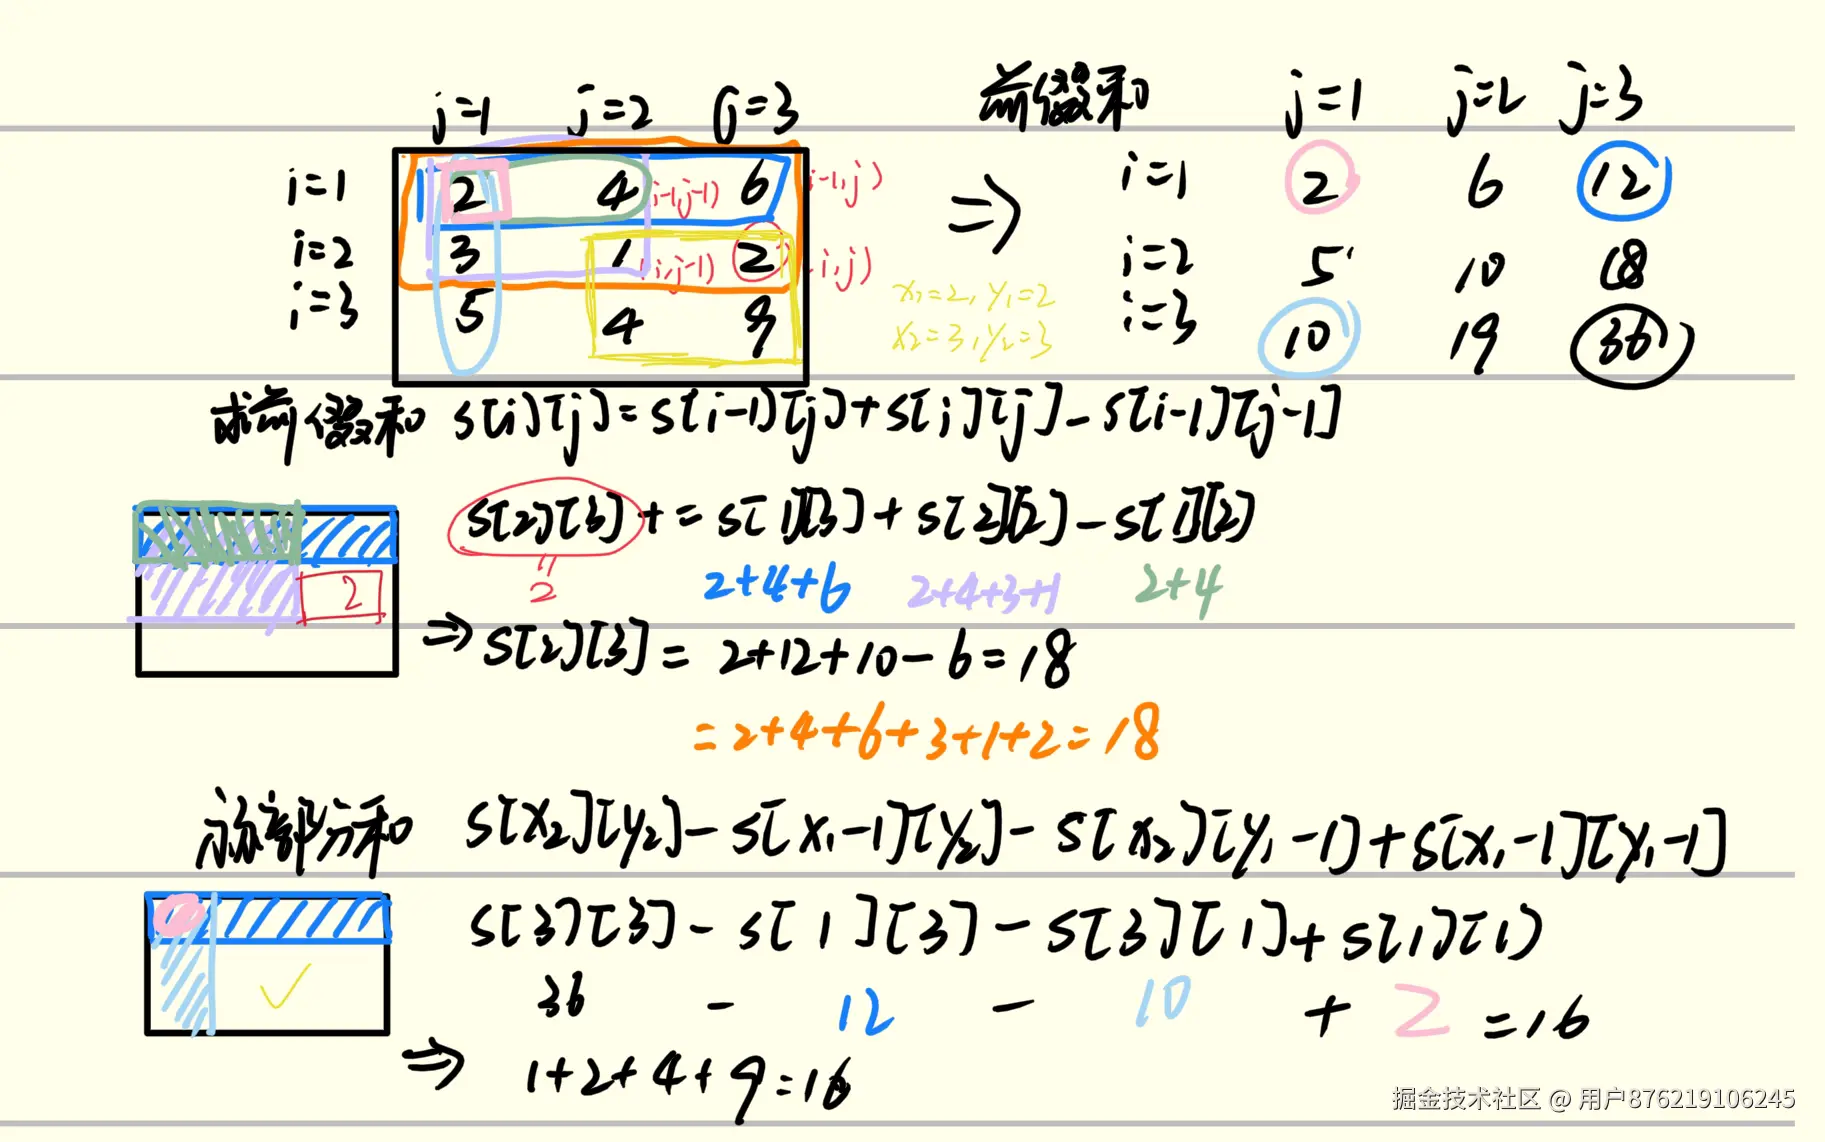 j=1 j=2 j=3 前缀和 j=1 j=2 j=3
i=1 2 4 (i-1,j-1) 6 (i-1,j) => i=1 2 6 12
i=2 3 1 (i,j-1) 2 (i,j) i=2 5 10 18
x₁=2,y₁=2
i=3 5 4 9 i=3 10 19 36
x₂=3,y₂=3
求前缀和 s[i][j]=s[i-1][j]+s[i][j]-s[i-1][j-1]
s[2][3]+=s[1][3]+s[2][2]-s[1][2]
2
" 2 2+4+6 2+4+3+1 2+4
=> s[2][3]=2+12+10-6=18
=2+4+6+3+1+2=18
求部分和 s[x₂][y₂]-s[x₁-1][y₂]-s[x₂][y₁-1]+s[x₁-1][y₁-1]
s[3][3]-s[1][3]-s[3][1]+s[1][1]
36 - 12 - 10 + 2 =16
=> 1+2+4+9=16
掘金技术社区 @ 用户876219106245